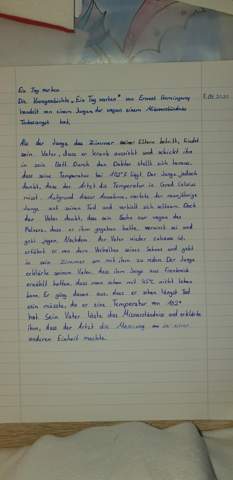 Ein Tag warten
Die Kurzgeschichte „Ein Tag warten" von Ernest Hemingway
handelt von einem Jungen, der wegen einem Missverständnis
Todesangst hat.
Als der Junge das Zimmer seiner Eltern betritt, findet
sein Vater, dass er krank aussieht und schickt ihn
in sein Bett. Durch den Doktor stellt sich heraus,
dass seine Temperatur bei 102°F liegt. Der Junge, jedoch
denkt, dass der Arzt die Temperatur in Grad Celsius
misst. Aufgrund dieser Annahme, wartete der neunjährige
Junge auf seinen Tod und verhielt sich seltsam. Doch
der Vater denkt, dass sein Sohn nur wegen des
Pulvers, dass er ihm gegeben hatte, verwirrt sei und
geht jagen. Nachdem der Vater wieder zuhause ist,
erfährt er von dem Verhalten seines Sohnes und geht
in sein Zimmer um mit ihm zu reden. Der Junge
erklärte seinem Vater, dass ihm Jungs aus Frankreich
erzählt hatten, dass man schon mit 45°C nicht leben
kann. Er ging davon aus, dass er schon längst tod
sein müsste, da er eine Temperatur von 102°
hat. Sein Vater löste das Missverständnis und erklärte
ihm, dass der Arzt die Messung in einer
anderen Einheit machte.